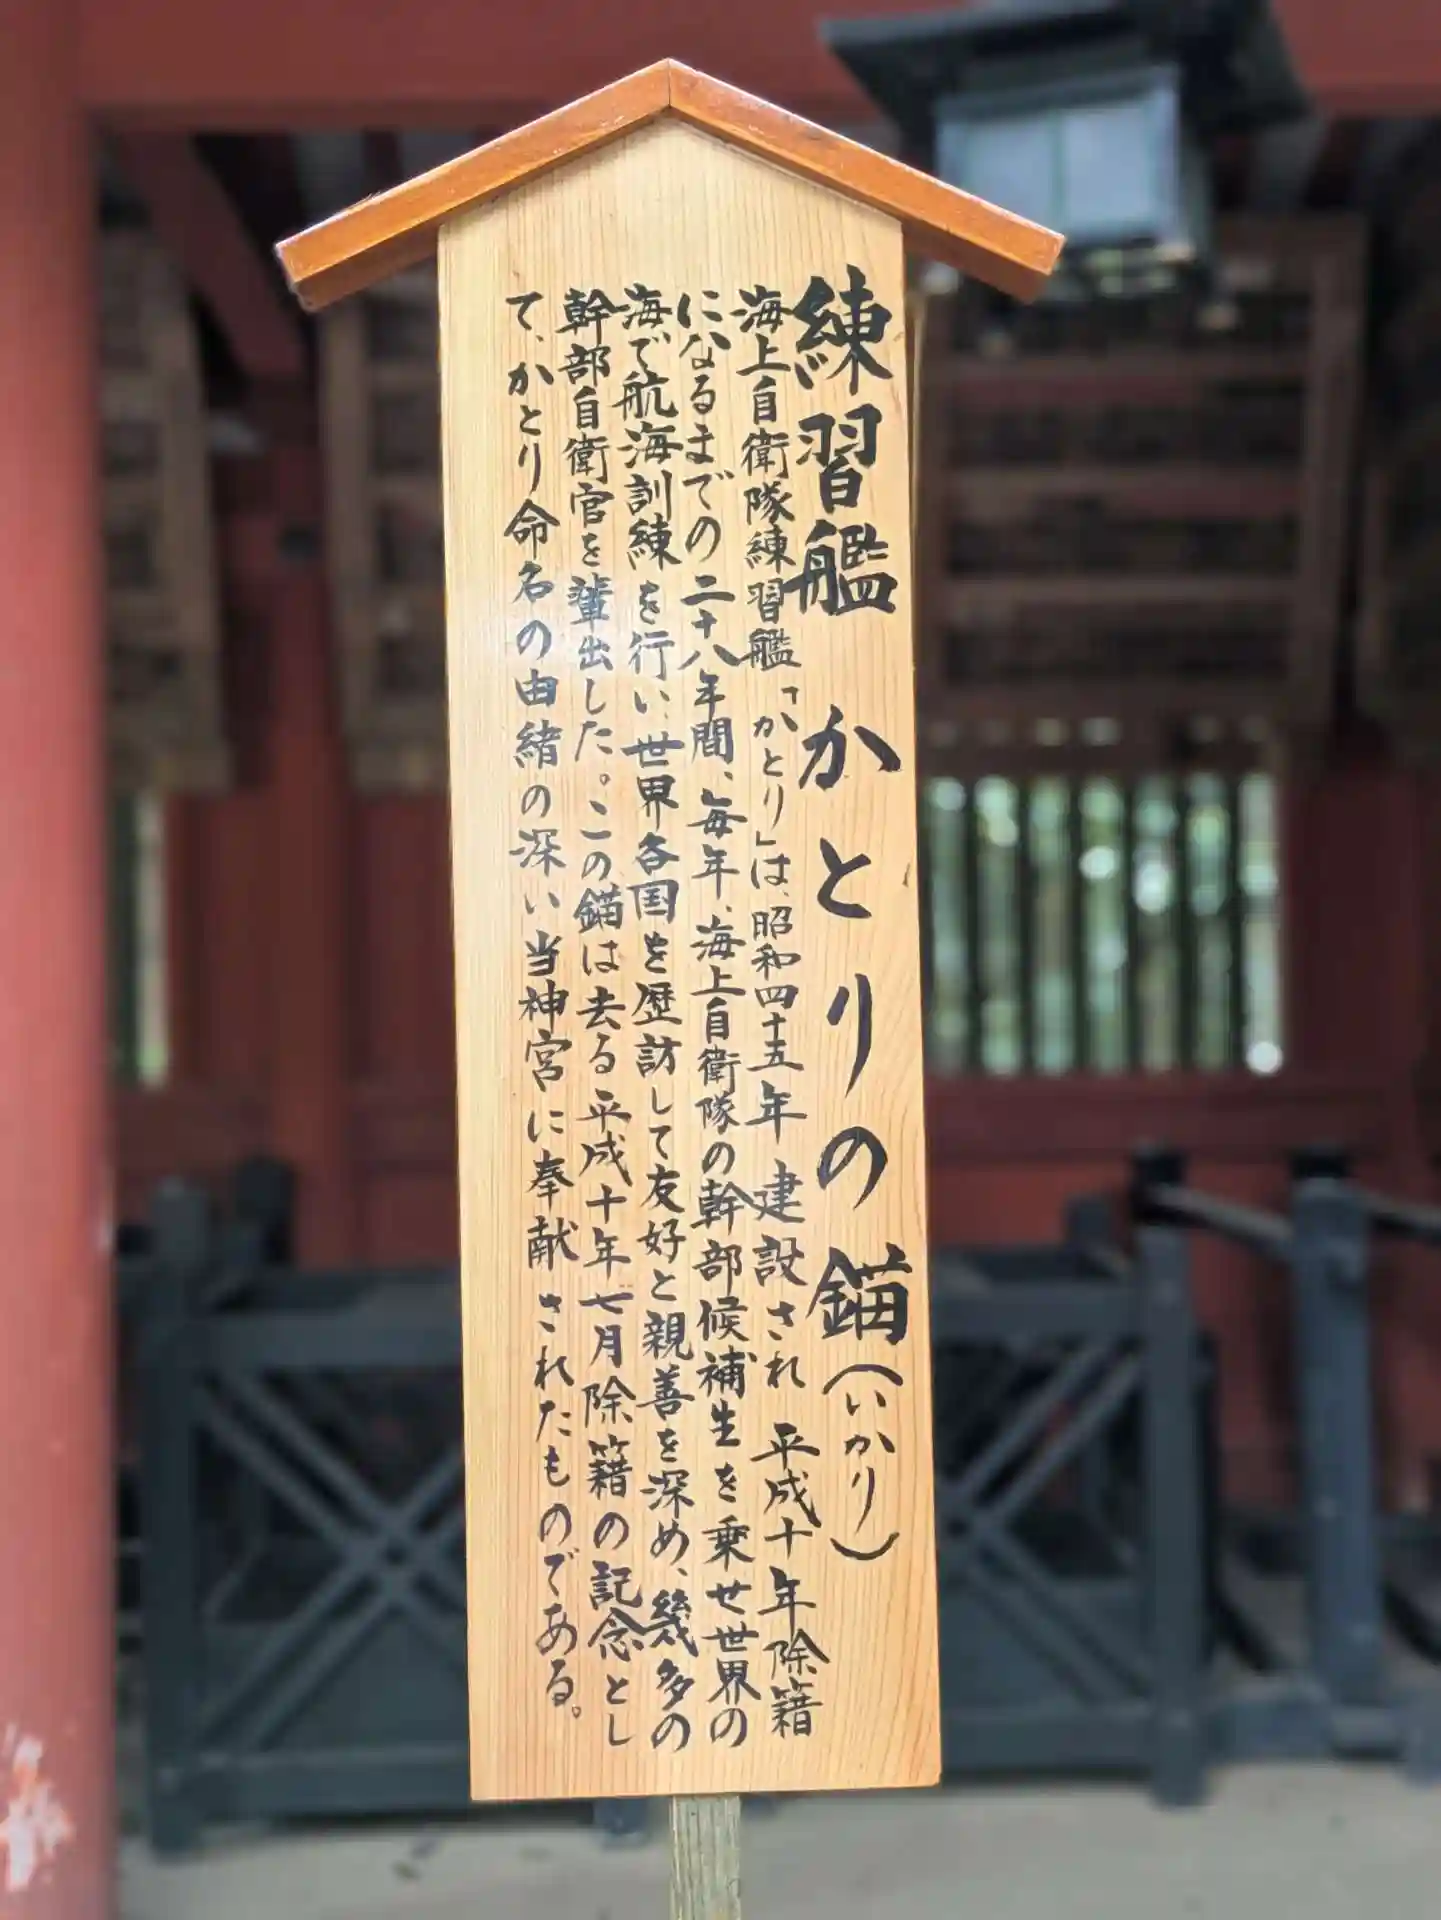 練習艦 かとりの錨(いかり)
海上自衛隊練習艦「かとり」は、昭和四十五年 建設され 平成十年除籍
になるまでの二十八年間、毎年、海上自衛隊の幹部候補生を乗せ世界の
海で航海訓練を行い、世界各国を歴訪して友好と親善を深め、幾多の
幹部自衛官を輩出した。この錨は去る平成十年七月除籍の記念とし
て、かとり命名の由緒の深い当神宮に奉献されたものである。